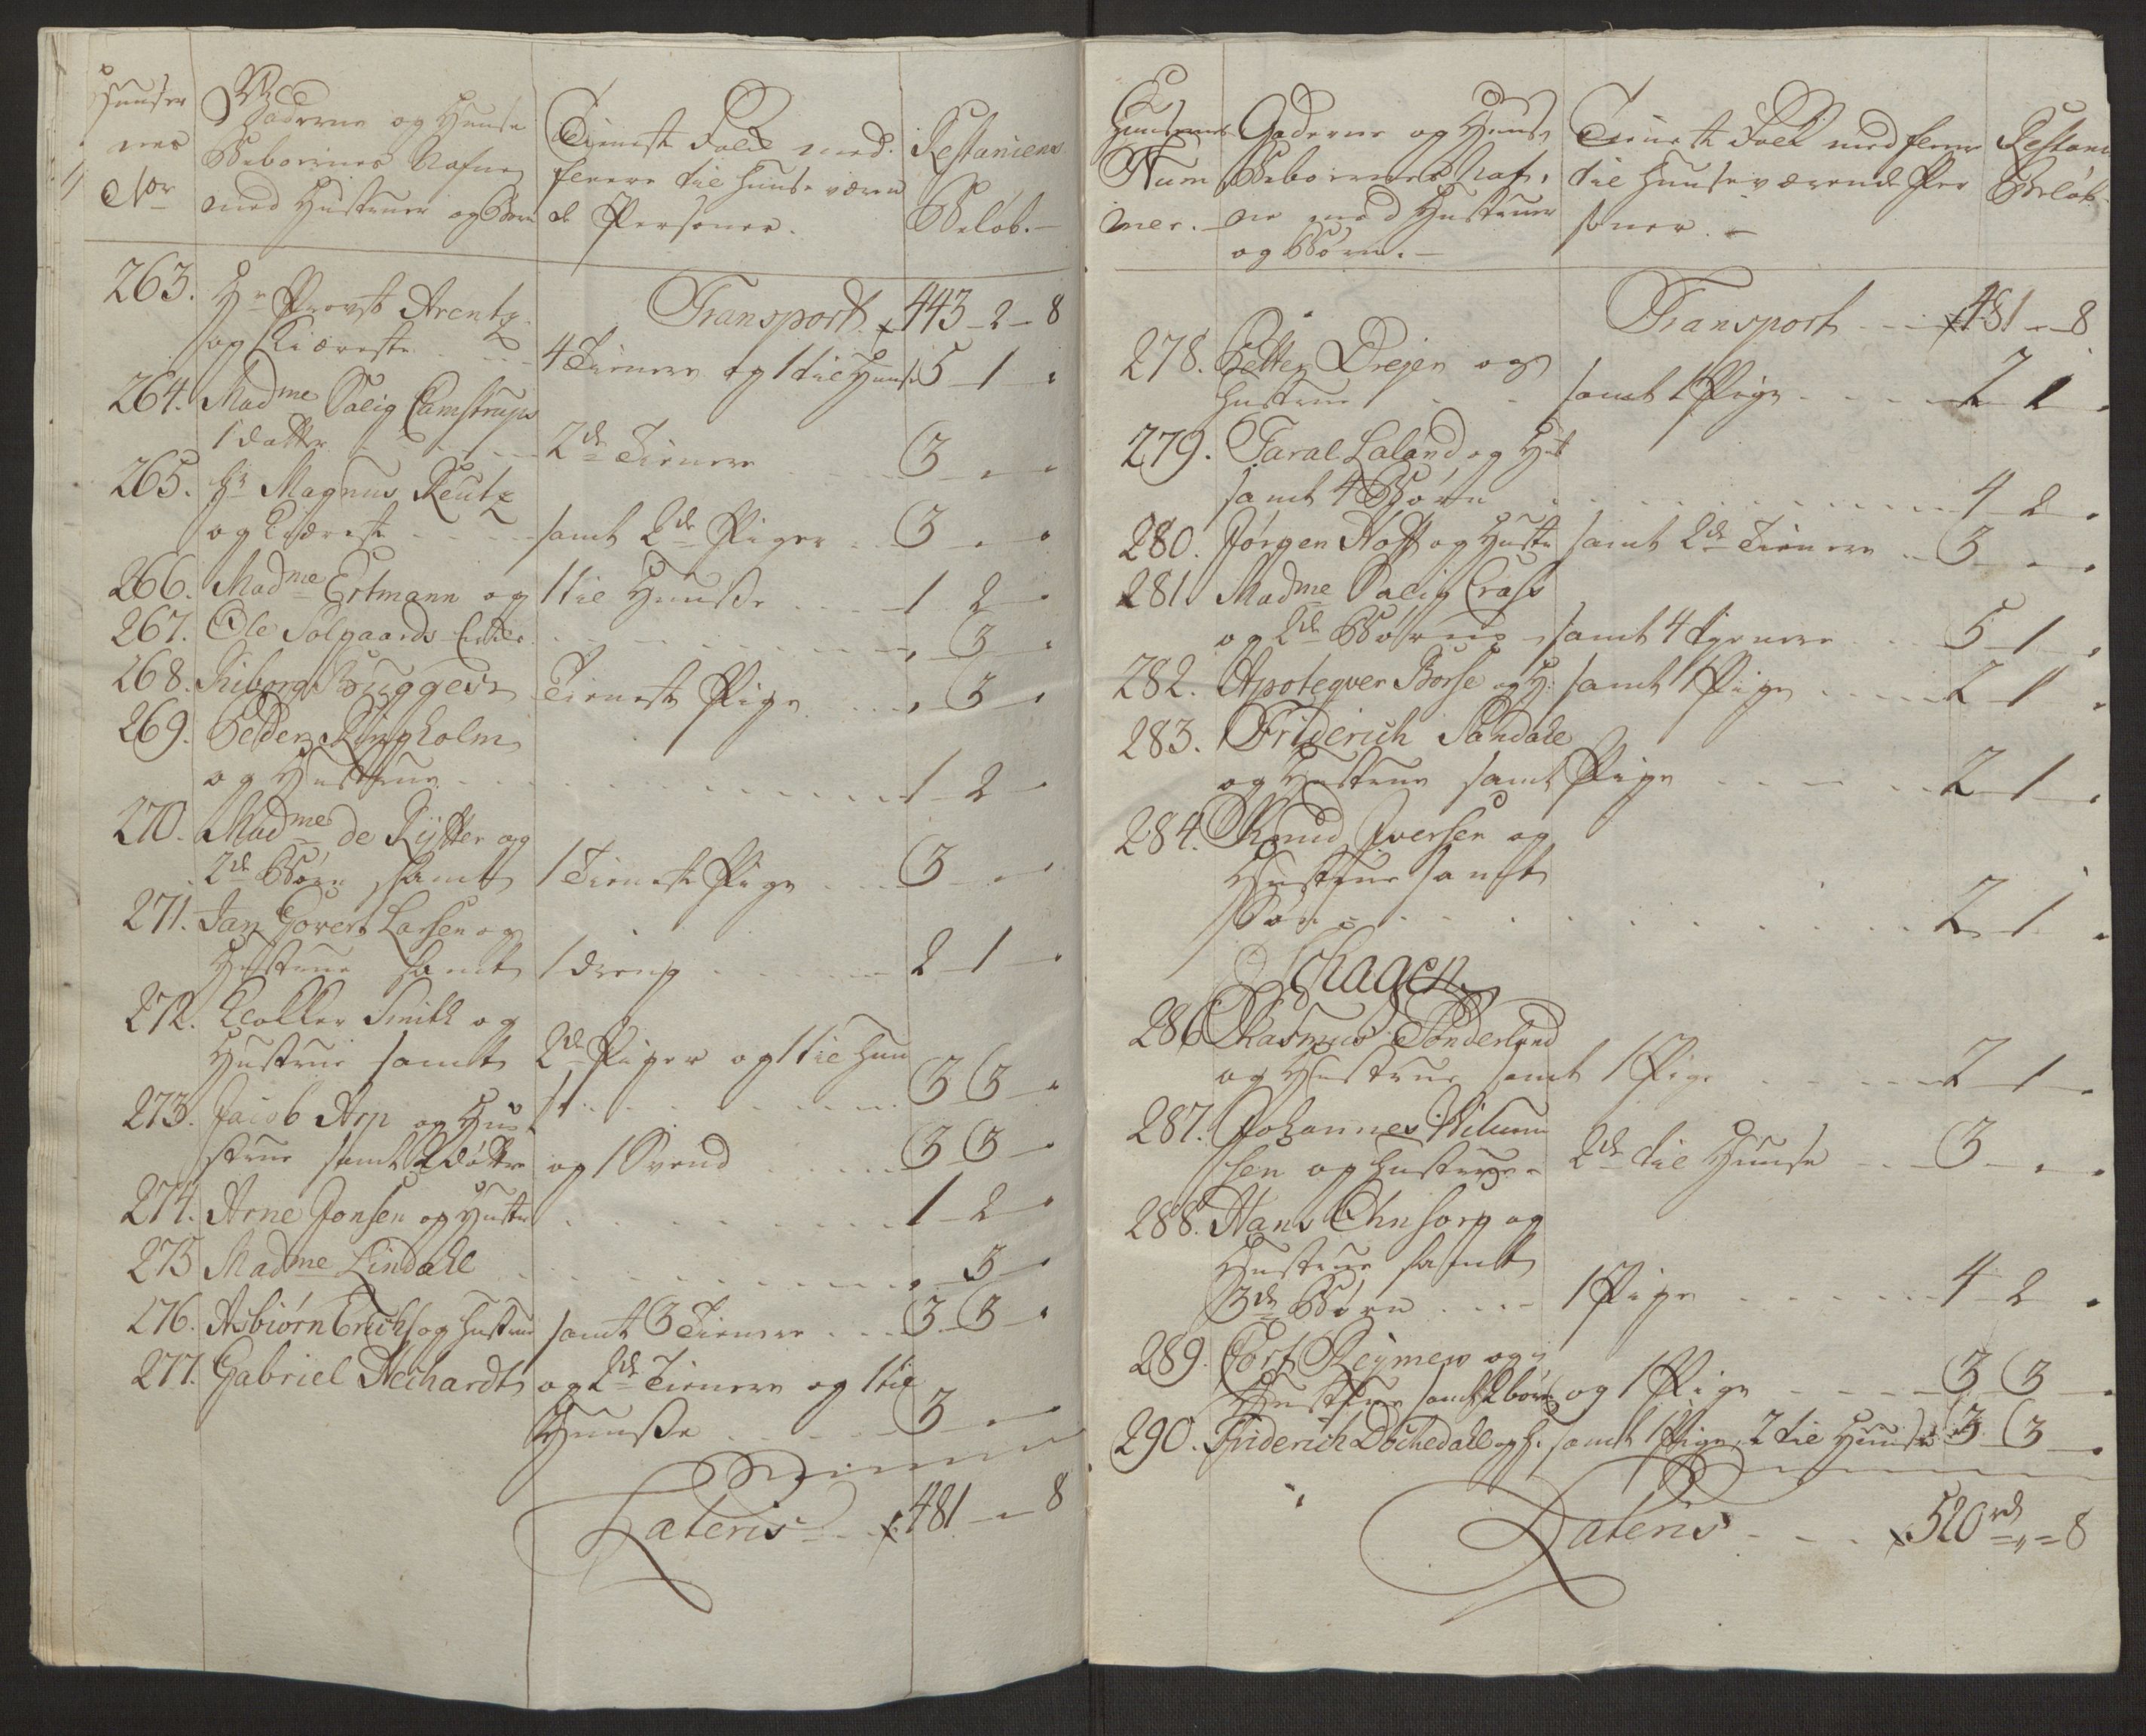 Huuser
nes
No
Gaderne og Huuse
Beboernes Nafne
med Hustruer og Børn
Tieneste Folk med
fleere til Huuse væren
de Personer.
Restancens
Beløb.
Transport 443 - 2 - 8
263. Hr Provst Arentz
og Kiæreste 4 Tienere og 1 til Huuse 5 - 1 -
264. Madme Salig Camstrups
1 datter 2de Tienere 3 - -
265. Hr Magnus Reutz
og Kiæreste samt 2de Piger 3 - -
266. Madme Ertmann og 1 til Huusse 1 2 -
267. Ole Solgaards - 3 -
268. Kiborg Brugger Tieneste Pige - 3 -
269. Peder Ringholm
og Hustrue 1 - 2 -
270. Madme de Rÿtter og
2de Børn samt 1 Tieneste Pige 3 - -
271. Jan Govert Larsen og
Hustrue samt 1 dreng 2 - 1 -
272. Koller Smith og
Hustrue samt 2de Piger og 1 til Huu
se 3 3 -
273. Jacob Arp og Hu
strue samt 2 døttre og 1 Svend 3 3 -
274. Arne Jonsen og Hustr 1 - 2 -
275 Madme Lindahl - 3 -
276. Asbiørn Erichs og Hustrue samt 3 Tienere 3 3 -
277. Gabriel Neihardt og 2de Tienere og 1 til
Huusse 3 - -
Lateris 481 - - 8
Huusernes
Num
mer.
Gaderne og Huuse
Beboernes Naf,
ne med Hustruer
og Børn.
Tieneste Folk med fleere
til Huuse værende Per
soner.
Restanc
Beløb
Transport 481 - 8
278. Petter Drejer og
Hustrue samt 1 Pige 2 1 -
279. Taral Laland og Hust
samt 4 Børn 4 - 2 -
280. Jørgen Hoff og Hustr samt 2de Tienere 3 - -
281. Madme Salig Crafs
og 2de Børn samt 4 tienere 5 - 1 -
282. Apoteqver Borse og H: samt 1 Pige 2 - 1 -
283. Friderich Sandahl
og Hustrue samt Pige 2 - 1 -
284. Knud Iversen og
Hustrue samt
1 Søn 2 - 1 -
Schagen
286 Rasmus Sønderlund
og Hustrue samt 1 Pige 2 - 1 -
287. Johannes Wilum
sen og Hustrue 2de til Huuse 3 - -
288. Hans Ohnsorg og
Hustrue samt
3de Børn 1 Pige 4 - 2 -
289. Cort Reÿmers og
Hustrue samt 2 børn og 1 Pige 3 3 -
290. Friderich Dochedahl og H. samt 1 Pige 2 til Huuse 3 3 -
Lateris 520 rd - - 8